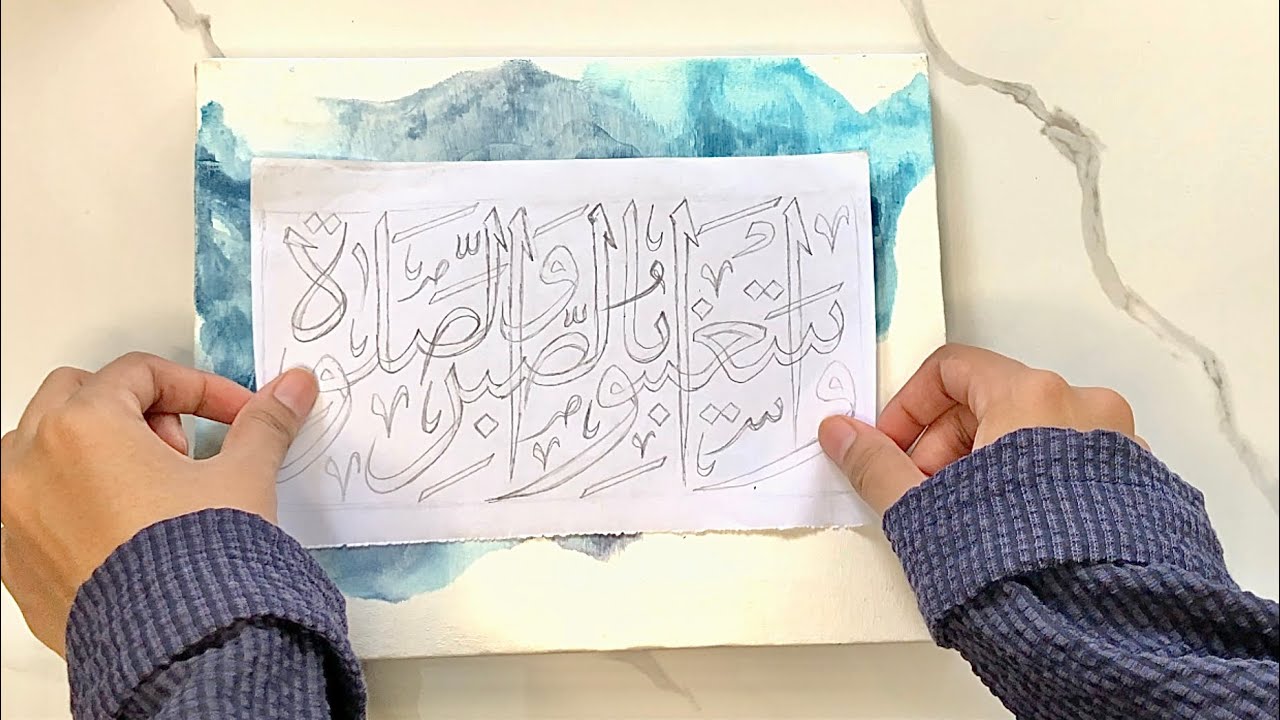 واستعينوا بالصّبر والصّلوة